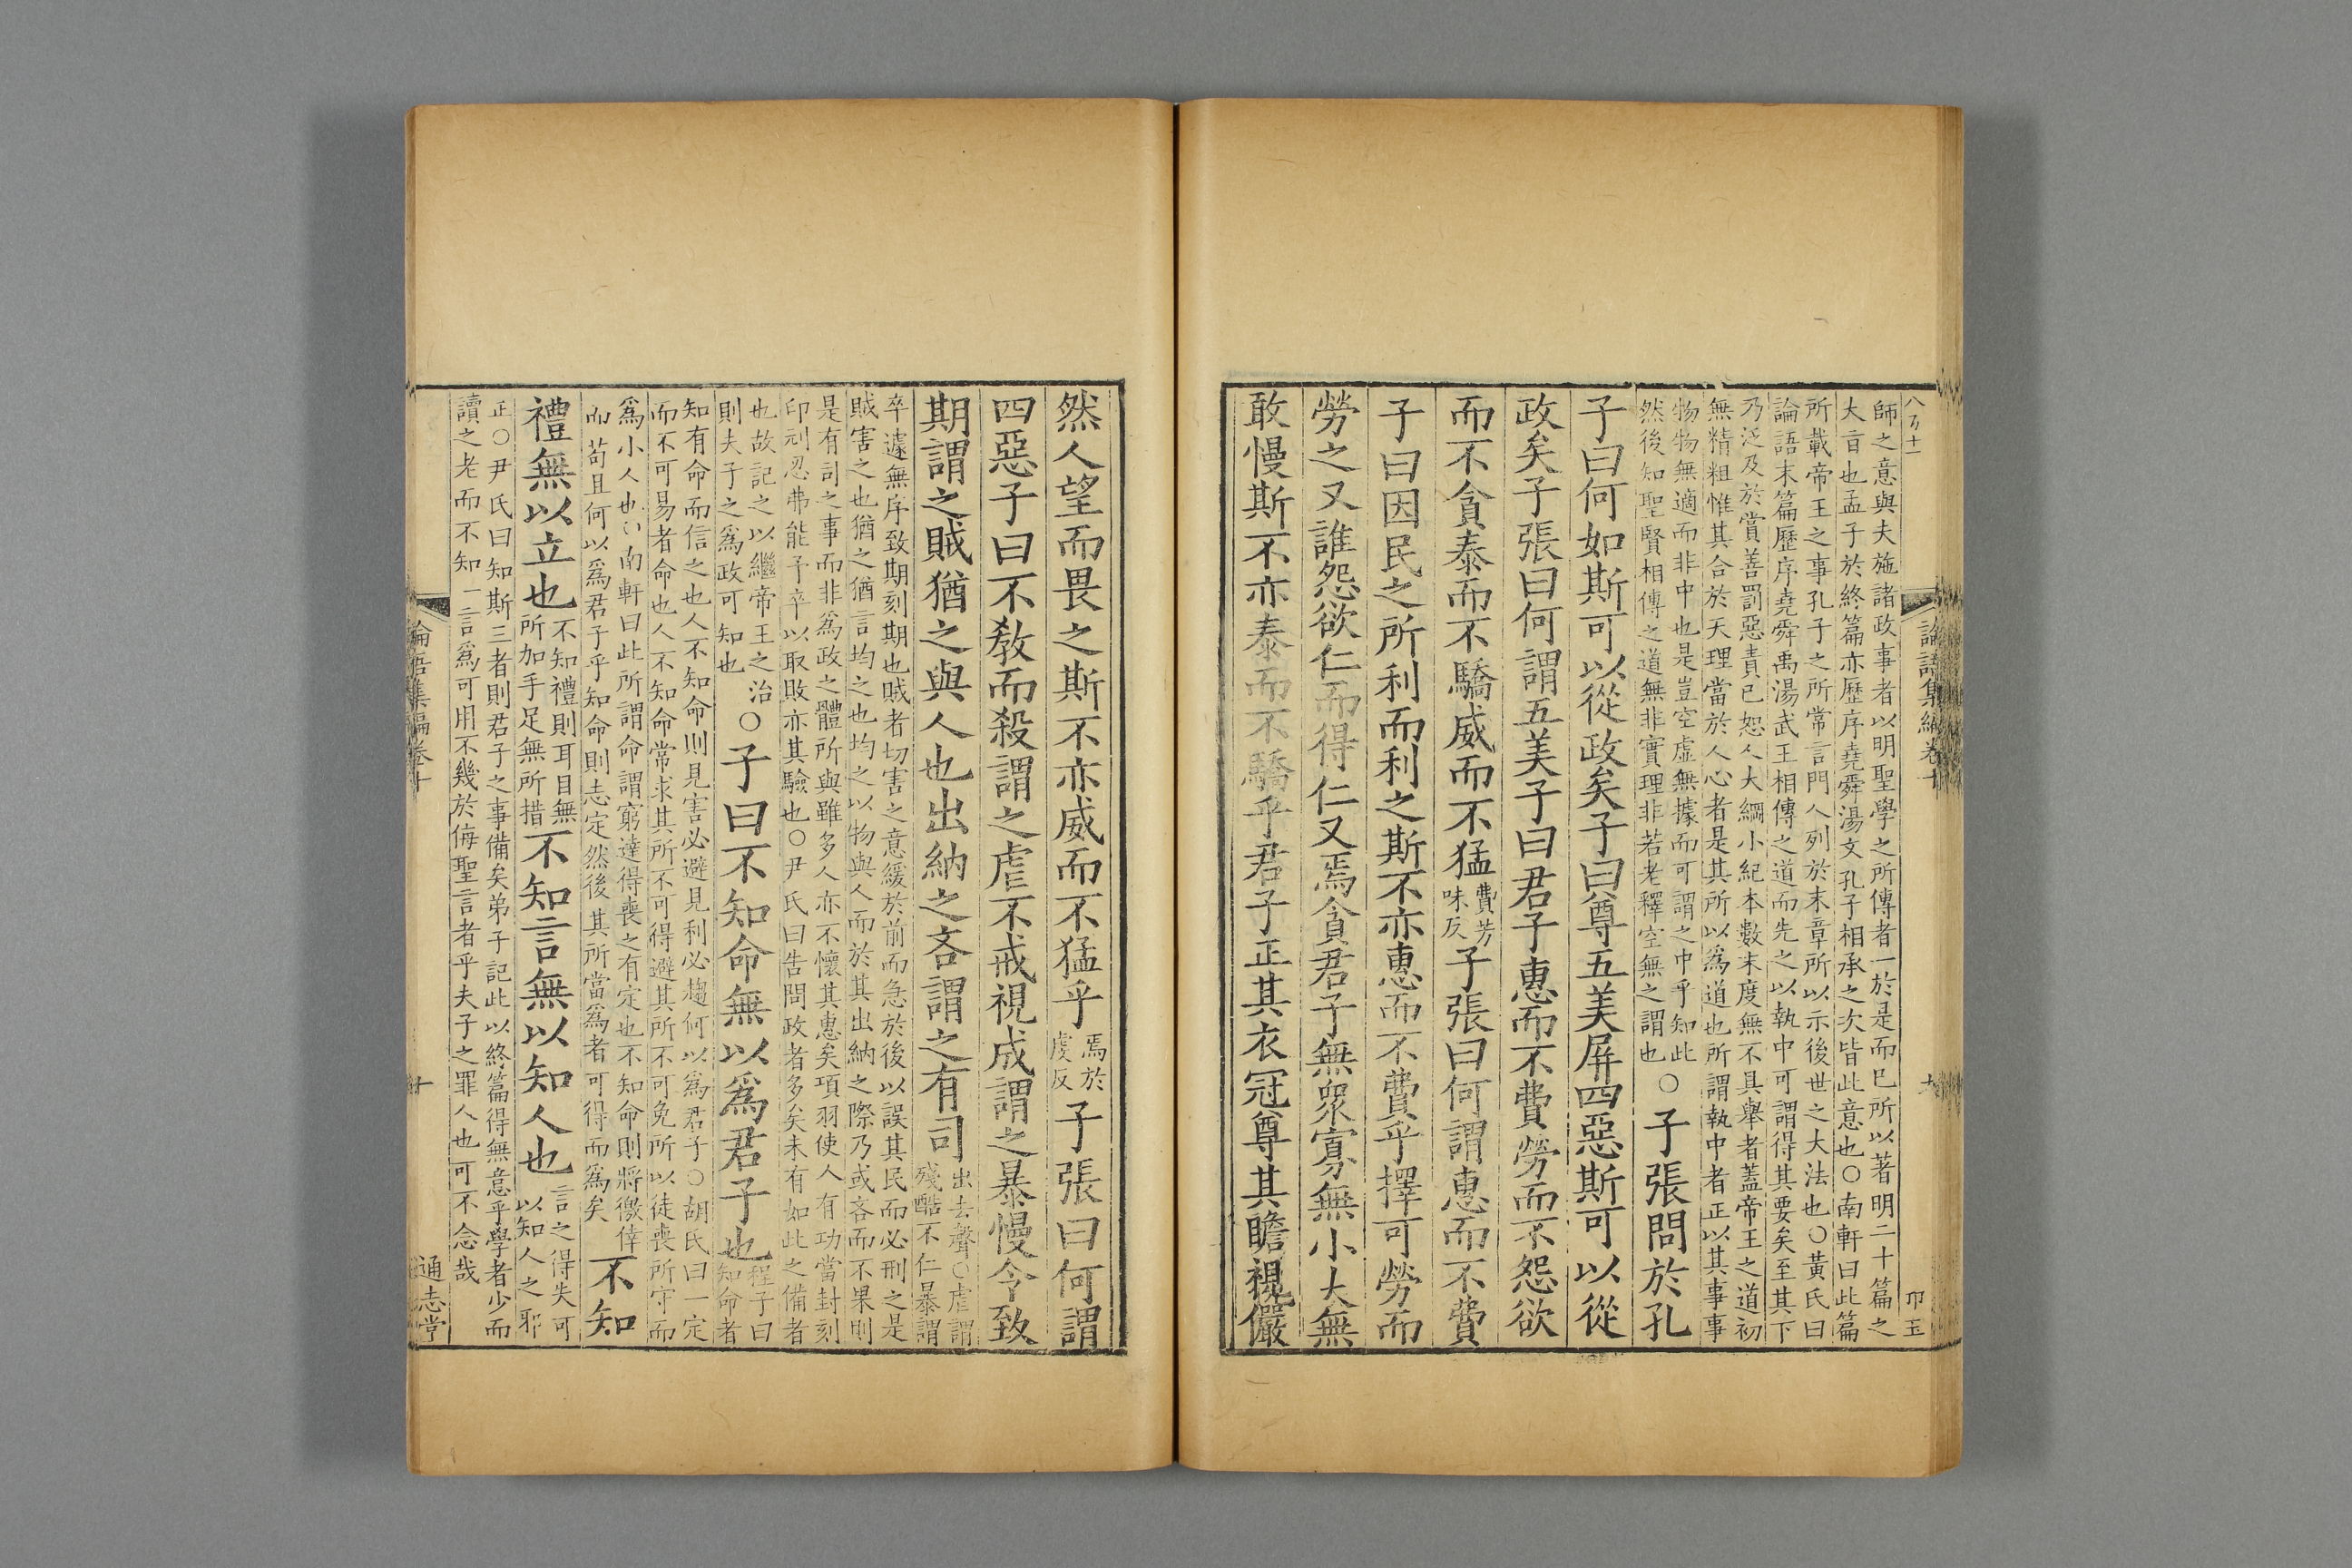 師之意與夫施諸政事者以明聖學之所傳者一於是而已所以著明二十篇之
大旨也孟子於終篇亦歷序堯舜湯文孔子相承之次皆此意也○南軒曰此篇
所載帝王之事孔子之所常言門人列於末章所以示後世之大法也○黃氏曰
論語末篇歷序堯舜禹湯武王相傳之道而先之以執中可謂得其要矣至其下
乃泛及於賞善罰惡責已恕人大綱小紀本數末度無不具舉者蓋帝王之道初
無精粗惟其合於天理當於人心者是其所以為道也所謂執中者正以其事事
物物無適而非中也是豈空虛無據而可謂之中乎知此
然後知聖賢相傳之道無非實理非若老釋空無之謂也○子張問於孔
子曰何如斯可以從政矣子曰尊五美屏四惡斯可以從
政矣子張曰何謂五美子曰君子惠而不費勞而不怨欲
而不貪泰而不驕威而不猛費芳味反子張曰何謂惠而不費
子曰因民之所利而利之斯不亦惠而不費乎擇可勞而
勞之又誰怨欲仁而得仁又焉貪君子無眾寡無小大無
敢慢斯不亦泰而不驕乎君子正其衣冠尊其瞻視儼
然人望而畏之斯不亦威而不猛乎焉於虔反子張曰何謂
四惡子曰不教而殺謂之虐不戒視成謂之暴慢令致
期謂之賊猶之與人也出納之吝謂之有司出去聲○虐謂殘酷不仁暴謂
卒遽無序致期刻期也賊者切害之意緩於前而急於後以誤其民而必刑之是
賊害之也猶之猶言均之也均之以物與人而於其出納之際乃或吝而不果則
是有司之事而非為政之體所與雖多人亦不懷其惠矣項羽使人有功當封刻
印刓忍弗能予卒以取敗亦其驗也○尹氏曰告問政者多矣未有如此之備者
也故記之以繼帝王之治
則夫子之為政可知也○子曰不知命無以為君子也程子曰知命者
知有命而信之也人不知命則見害必避見利必趨何以為君子○胡氏曰一定
而不可易者命也人不知命常求其所不可得避其所不可免所以徒喪所守而
為小人也○南軒曰此所謂命謂窮達得喪之有定也不知命則將徼倖
而苟且何以為君子乎知命則志定然後其所當為者可得而為矣不知
禮無以立也不知禮則耳目無所加手足無所措不知言無以知人也言之得失可以知人之邪
正○尹氏曰知斯三者則君子之事備矣弟子記此以終篇得無意乎學者少而
讀之老而不知一言為可用不幾於侮聖言者乎夫子之罪人也可不念哉
論語集編卷十
十
通志堂